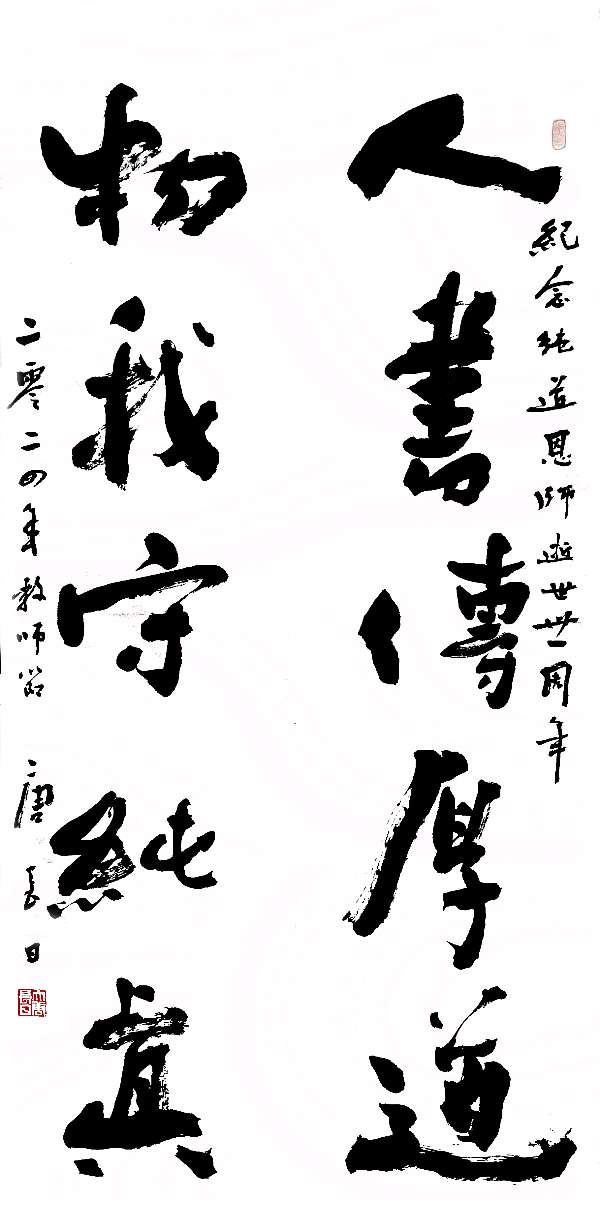 紀念純道恩師逝世卅一周年
人書傳厚道
物我守純真
二零二四年教師節
唐長日